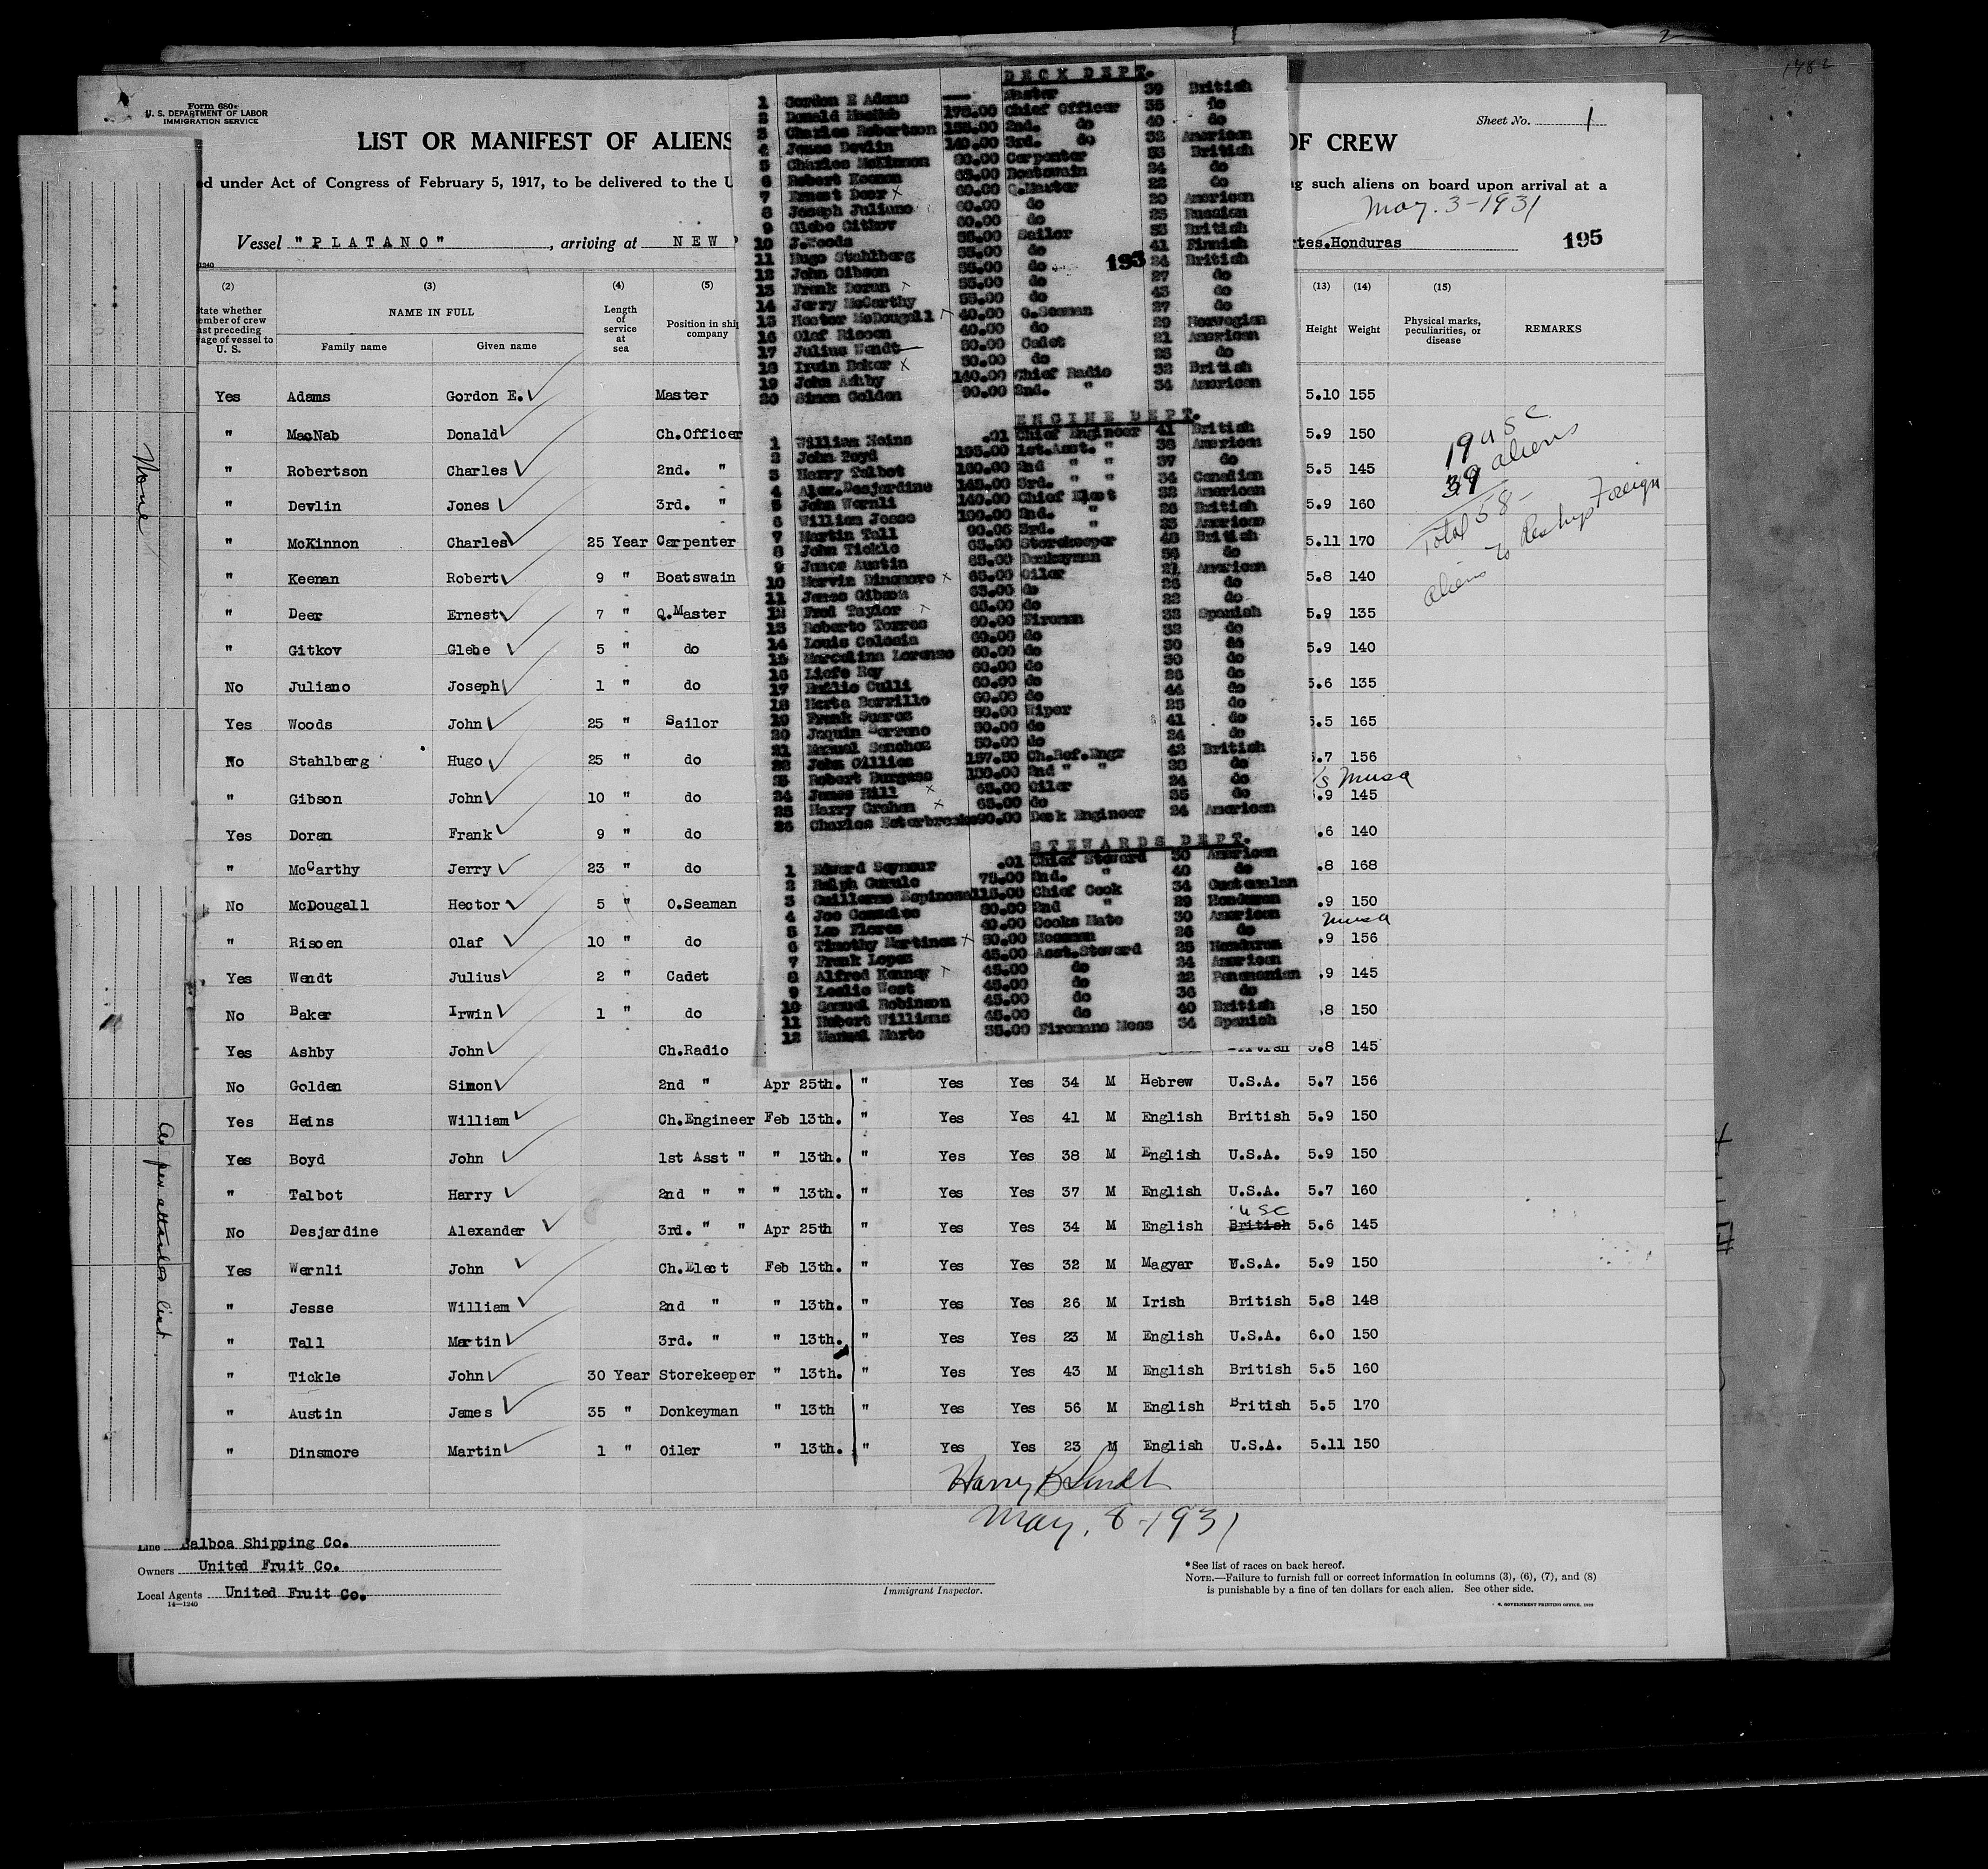 1482
2
Form 680
U. S. DEPARTMENT OF LABOR
IMMIGRATION SERVICE
Sheet No. 1
LIST OR MANIFEST OF ALIENS
OF CREW
ed under Act of Congress of February 5, 1917, to be delivered to the U
such aliens on board upon arrival at a
May. 3-1931
Vessel "PLATANO" , arriving at NEW
tes.Honduras
195
(2) (3) (4) (5)
(13) (14) (15)
state whether
member of crew
last preceding
voyage of vessel to
U. S.
NAME IN FULL
Family name Given name
Length
of
service
at
sea
Position in ship
company
Height Weight
Physical marks,
peculiarities, or
disease
REMARKS
Yes Adams Gordon E. Master 5.10 155
" MacNab Donald Ch.Officer 5.9 150
" Robertson Charles 2nd. " 5.5 145
" Devlin Jones 3rd. " 5.9 160
" McKinnon Charles 25 Year Carpenter 5.11 170
" Keenan Robert 9 " Boatswain 5.8 140
" Deer Ernest 7 " Q.Master 5.9 135
" Gitkov Glebe 5 " do 5.9 140
No Juliano Joseph 1 " do 5.6 135
Yes Woods John 25 " Sailor 5.5 165
No Stahlberg Hugo 25 " do .7 156
" Gibson John 10 " do .9 145
Yes Doran Frank 9 " do .6 140
" McCarthy Jerry 23 " do .8 168
No McDougall Hector 5 " O.Seaman .9 150
" Risoen Olaf 10 " do .9 156
Yes Wendt Julius 2 " Cadet .9 145
No Baker Irwin 1 " do .8 150
Yes Ashby John Ch.Radio 5.8 145
No Golden Simon 2nd " Apr 25th. " Yes Yes 34 M Hebrew U.S.A. 5.7 156
Yes Heins William Ch.Engineer Feb 13th. " Yes Yes 41 M English British 5.9 150
Yes Boyd John 1st Asst " " 13th. " Yes Yes 38 M English U.S.A. 5.9 150
" Talbot Harry 2nd " " " 13th. " Yes Yes 37 M English U.S.A. 5.7 160
USC
No Desjardine Alexander 3rd. " " Apr 25th " Yes Yes 34 M English British 5.6 145
Yes Wernli John Ch.Elect Feb 13th. " Yes Yes 32 M Magyar U.S.A. 5.9 150
" Jesse William 2nd " " 13th. " Yes Yes 26 M Irish British 5.8 148
" Tall Martin 3rd. " " 13th. " Yes Yes 23 M English U.S.A. 6.0 150
" Tickle John 30 Year Storekeeper " 13th. " Yes Yes 43 M English British 5.5 160
" Austin James 35 " Donkeyman " 13th " Yes Yes 56 M English British 5.5 170
" Dinsmore Martin 1 " Oiler " 13th. " Yes Yes 23 M English U.S.A. 5.11 150
19 USC
39 aliens
Total 58-
aliens to Reship Foreign
Musa
Musa
May. 8-1931
Line Balboa Shipping Co.
Owners United Fruit Co.
Local Agents United Fruit Co.
14—1240
Immigrant Inspector.
*See list of races on back hereof.
NOTE.—Failure to furnish full or correct information in columns (3), (6), (7), and (8)
is punishable by a fine of ten dollars for each alien. See other side.
None
As per attached list.
DECK DEPT.
1 Gordon E Adams Master 39 British
2 Donald MacNab 175.00 Chief Officer 35 do
3 Charles Robertson 155.00 2nd. do 40 do
4 Jones Devlin 140.00 3rd. do 32 American
5 Charles McKinnon 80.00 Carpenter 53 British
6 Robert Keenan 65.00 Boatswain 24 do
7 Ernest Deer 60.00 Q.Master 22 do
8 Joseph Juliano 60.00 do 20 American
9 Glebe Gitkov 60.00 do 25 Russian
10 J.Woods 55.00 Sailor 53 British
11 Hugo Stahlberg 55.00 do 41 Finnish
193
12 John Gibson 55.00 do 24 British
13 Frank Doran 55.00 do 27 do
14 Jerry McCarthy 55.00 do 43 do
15 Hector McDougall 40.00 O.Seaman 27 do
16 Olaf Risoen 40.00 do 29 Norwegian
17 Julius Wendt 50.00 Cadet 21 American
18 Irwin Baker 50.00 do 23 do
19 John Ashby 140.00 Chief Radio 32 British
20 Simon Golden 90.00 2nd. " 34 American
ENGINE DEPT.
1 William Heins .01 Chief Engineer 41 British
2 John Boyd 195.00 1st.Asst. " 38 American
3 Harry Talbot 160.00 2nd " " 37 do
4 Alex.Desjardine 145.00 3rd. " " 34 Canadian
5 John Wernli 140.00 Chief Elect 32 American
6 William Jesse 100.00 2nd. " 26 British
7 Martin Tall 90.00 3rd. " 23 American
8 John Tickle 65.00 Storekeeper 43 British
9 James Austin 65.00 Donkeyman 56 do
10 Mervin Dinsmore 65.00 Oiler 21 American
11 James Gibson 65.00 do 26 do
12 Fred Taylor 65.00 do 22 do
13 Roberto Torres 60.00 Fireman 32 Spanish
14 Louis Golosia 60.00 do 32 do
15 Marcelino Lorenzo 60.00 do 30 do
16 Licfe Rey 60.00 do 30 do
17 Emilio Culli 60.00 do 26 do
18 Berta Borrillo 60.00 do 44 do
19 Frank Suarez 50.00 Wiper 25 do
20 Joquin Serrano 50.00 do 41 do
21 Manuel Sanchez 50.00 do 24 do
22 John Gillies 187.50 Ch.Ref.Engr 42 British
23 Robert Burgess 135.00 2nd " " 23 do
24 James Hill 65.00 Oiler 24 do
25 Harry Graham 65.00 do 35 do
26 Charles Esterbrooks 90.00 Deck Engineer 24 American
STEWARDS DEPT.
1 Edward Seymour .01 Chief Steward 50 American
2 Ralph Gurule 75.00 2nd. " 40 do
3 Guillermo Espinoza 115.00 Chief Cook 34 Guatemalan
4 Joe Gonzales 80.00 2nd " 29 Honduran
5 Leo Flores 40.00 Cooks Mate 30 American
6 Timothy Martinez 50.00 Messman 26 do
7 Frank Lopez 45.00 Asst.Steward 25 Honduran
8 Alfred Kenney 45.00 do 24 American
9 Leslie West 45.00 do 22 Panamanian
10 Samuel Robinson 45.00 do 36 do
11 Hubert Williams 45.00 do 40 British
12 Manuel Marto 35.00 Firemans Mess 34 Spanish